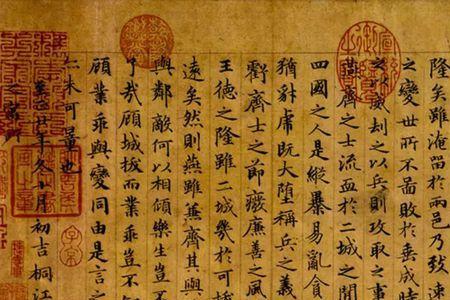 隆矣雖淹留於兩邑乃致速
之變世所不啚敗於垂成
之以威劫之以兵則攻取之事
燕齊之士流血於二城之間
四國之人是縱暴易亂貪
猶豺虎既大墮稱兵之義
虧齊士之節癈廉善之風
王德之隆雖二城幾於可
遠矣然則燕雖兼齊其與
與鄰敵何以相傾樂生豈不
了哉顧城拔而業乖豈不
顧業乖與變同由是言之
未可量也
廿年冬小月初吉桐江